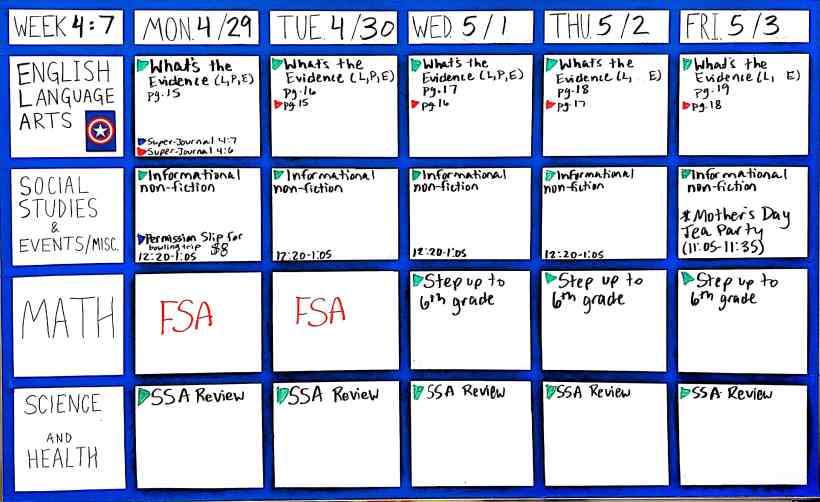 WEEK 4:7
MON. 4/29
TUE. 4/30
WED. 5/1
THU. 5/2
FRI. 5/3
ENGLISH
LANGUAGE
ARTS
What's the
Evidence (L,P,E)
pg. 15
Super-Journal 4:7
Super-Journal 4:6
What's the
Evidence (L,P,E)
pg. 16
pg. 15
What's the
Evidence (L,P,E)
pg. 17
pg. 16
What's the
Evidence (L, E)
pg. 18
pg. 17
What's the
Evidence (L, E)
pg. 19
pg. 18
SOCIAL
STUDIES
&
EVENTS/MISC.
Informational
non-fiction
Permission Slip for
bowling trip $8
12:20-1:05
Informational
non-fiction
12:20-1:05
Informational
non-fiction
12:20-1:05
Informational
non-fiction
12:20-1:05
Informational
non-fiction
*Mother's Day
Tea Party
(11:05-11:35)
MATH
FSA
FSA
Step up to
6th grade
Step up to
6th grade
Step up to
6th grade
SCIENCE
AND
HEALTH
SSA Review
SSA Review
SSA Review
SSA Review
SSA Review